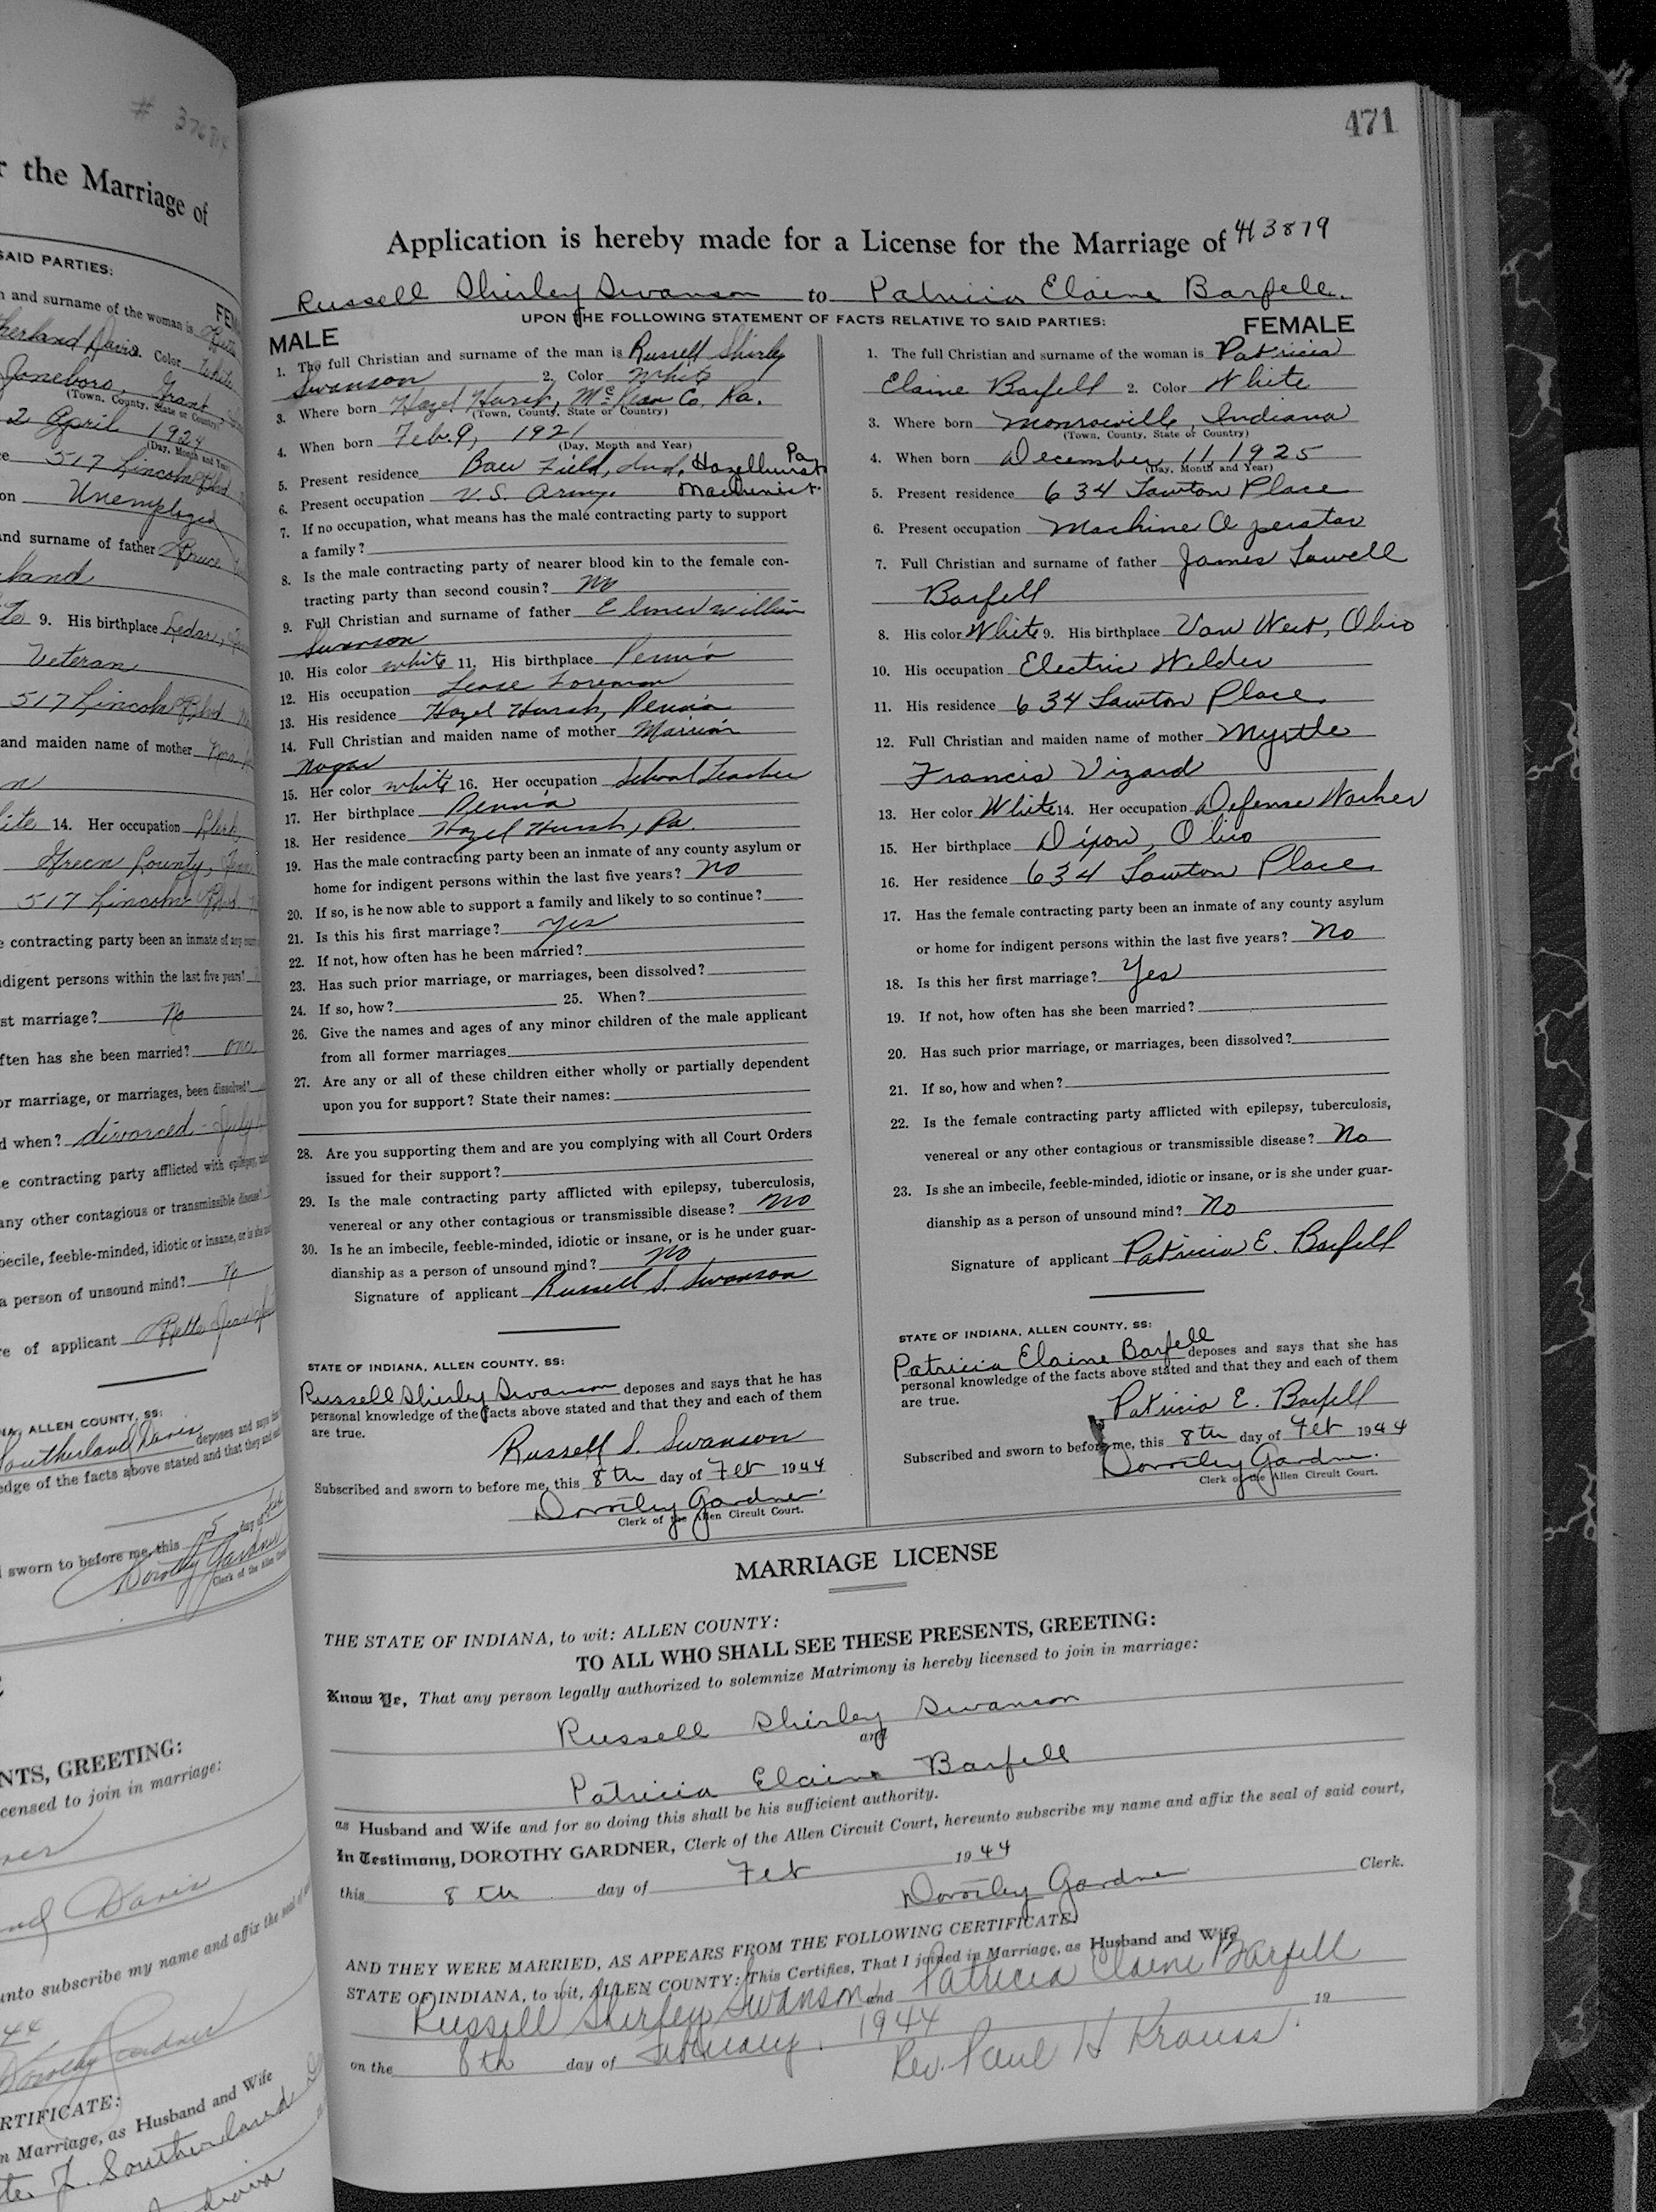 # 376
r the Marriage of
SAID PARTIES:
n and surname of the woman is
Davis. Color White
Jonesboro, Grant
(Town, County, State or Country)
2 April 1924
(Day, Month and Year)
517 Lincoln Blvd
on Unemployed
and surname of father Bruce
land
9. His birthplace
Veteran
517 Lincoln Blvd
and maiden name of mother
ite 14. Her occupation Clerk
Green County,
517 Lincoln Blvd
e contracting party been an inmate of any
digent persons within the last five years?
st marriage? No
ften has she been married? one
or marriage, or marriages, been dissolved?
d when? divorced - July
e contracting party afflicted with
any other contagious or transmissible disease?
becile, feeble-minded, idiotic or insane, or is she
a person of unsound mind? No
re of applicant
NA, ALLEN COUNTY, SS:
Southerland Davis deposes and says
edge of the facts above stated and that they and
sworn to before me, this 5 day of
Dorothy Gardner
Clerk of the Allen
NTS, GREETING:
censed to join in marriage:
Davis
unto subscribe my name and affix the seal of
44
Dorothy Gardner
RTIFICATE:
n Marriage, as Husband and Wife
471
Application is hereby made for a License for the Marriage of 43879
Russell Shirley Swanson to Patricia Elaine Barfell.
UPON THE FOLLOWING STATEMENT OF FACTS RELATIVE TO SAID PARTIES:
MALE
1. The full Christian and surname of the man is Russell Shirley
Swanson 2. Color White
3. Where born Hazel Hurst, McKean Co. Pa.
(Town, County, State or Country)
4. When born Feb. 9, 1921
(Day, Month and Year)
5. Present residence Baer Field, Ind. Hazelhurst Pa
6. Present occupation U.S. Army. Machinist.
7. If no occupation, what means has the male contracting party to support
a family?
8. Is the male contracting party of nearer blood kin to the female con-
tracting party than second cousin? No
9. Full Christian and surname of father Elmer William
Swanson
10. His color white 11. His birthplace Penn'a
12. His occupation Lease Foreman
13. His residence Hazel Hurst, Penn'a
14. Full Christian and maiden name of mother Marian
15. Her color white 16. Her occupation School Teacher
17. Her birthplace Penn'a
18. Her residence Hazel Hurst, Pa.
19. Has the male contracting party been an inmate of any county asylum or
home for indigent persons within the last five years? No
20. If so, is he now able to support a family and likely to so continue?
21. Is this his first marriage? yes
22. If not, how often has he been married?
23. Has such prior marriage, or marriages, been dissolved?
24. If so, how? 25. When?
26. Give the names and ages of any minor children of the male applicant
from all former marriages
27. Are any or all of these children either wholly or partially dependent
upon you for support? State their names:
28. Are you supporting them and are you complying with all Court Orders
issued for their support?
29. Is the male contracting party afflicted with epilepsy, tuberculosis,
venereal or any other contagious or transmissible disease? No
30. Is he an imbecile, feeble-minded, idiotic or insane, or is he under guar-
dianship as a person of unsound mind? No
Signature of applicant Russell S. Swanson
STATE OF INDIANA, ALLEN COUNTY, SS:
Russell Shirley Swanson deposes and says that he has
personal knowledge of the facts above stated and that they and each of them
are true.
Russell S. Swanson
Subscribed and sworn to before me, this 8th day of Feb 1944
Dorothy Gardner.
Clerk of the Allen Circuit Court.
FEMALE
1. The full Christian and surname of the woman is Patricia
Elaine Barfell 2. Color White
3. Where born Monroeville, Indiana
(Town, County, State or Country)
4. When born December 11 1925
(Day, Month and Year)
5. Present residence 634 Lawton Place
6. Present occupation Machine Operator
7. Full Christian and surname of father James Lowell
Barfell
8. His color White 9. His birthplace Van Wert, Ohio
10. His occupation Electric Welder
11. His residence 634 Lawton Place
12. Full Christian and maiden name of mother Myrtle
Francis Vizard
13. Her color White 14. Her occupation Defense Worker
15. Her birthplace Dixon, Ohio
16. Her residence 634 Lawton Place
17. Has the female contracting party been an inmate of any county asylum
or home for indigent persons within the last five years? No
18. Is this her first marriage? Yes
19. If not, how often has she been married?
20. Has such prior marriage, or marriages, been dissolved?
21. If so, how and when?
22. Is the female contracting party afflicted with epilepsy, tuberculosis,
venereal or any other contagious or transmissible disease? No
23. Is she an imbecile, feeble-minded, idiotic or insane, or is she under guar-
dianship as a person of unsound mind? No
Signature of applicant Patricia E. Barfell
STATE OF INDIANA, ALLEN COUNTY, SS:
Patricia Elaine Barfell deposes and says that she has
personal knowledge of the facts above stated and that they and each of them
are true.
Patricia E. Barfell
Subscribed and sworn to before me, this 8th day of Feb 1944
Dorothy Gardner.
Clerk of the Allen Circuit Court.
MARRIAGE LICENSE
THE STATE OF INDIANA, to wit: ALLEN COUNTY:
TO ALL WHO SHALL SEE THESE PRESENTS, GREETING:
Know Ye, That any person legally authorized to solemnize Matrimony is hereby licensed to join in marriage:
Russell Shirley Swanson
and
Patricia Elaine Barfell
as Husband and Wife and for so doing this shall be his sufficient authority.
In Testimony, DOROTHY GARDNER, Clerk of the Allen Circuit Court, hereunto subscribe my name and affix the seal of said court,
this 8th day of Feb 1944
Dorothy Gardner Clerk.
AND THEY WERE MARRIED, AS APPEARS FROM THE FOLLOWING CERTIFICATE:
STATE OF INDIANA, to wit, ALLEN COUNTY: This Certifies, That I joined in Marriage, as Husband and Wife
Russell Shirley Swanson and Patricia Elaine Barfell
on the 8th day of February, 1944 19
Rev. Paul H Krauss.